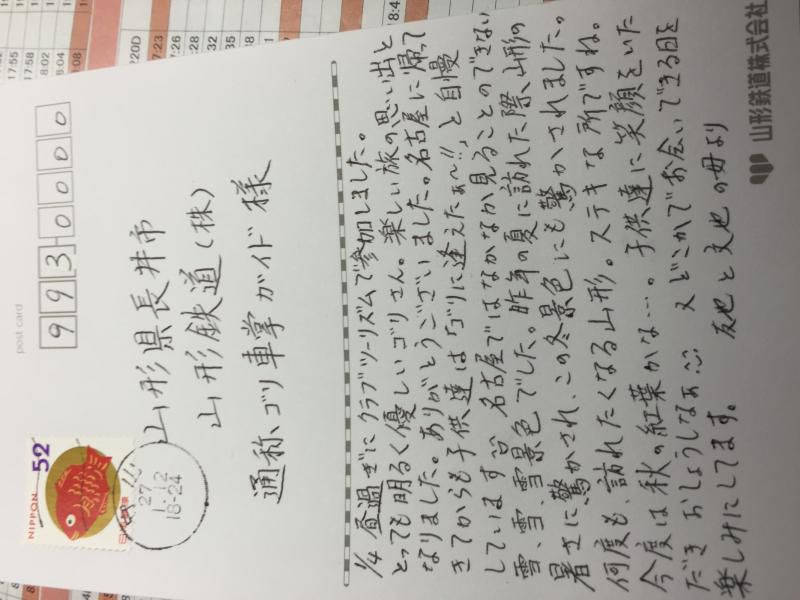 post card
993-0000
NIPPON 52
27
1.12
18-24
山形県長井市
山形鉄道(株)
通称、ゴリ車掌ガイド様
1/4 昼過ぎに クラブツーリズムで参加しました。
とっても明るく優しいゴリさん。楽しい旅の思い出と
なりました。ありがとうございました。名古屋に帰って
きてからも子供達は「ゴリに逢えたぁ〜!!」と自慢
しています 名古屋ではなかなか見ることのできない
雪、雪、雪景色でした。昨年の夏に訪れた際、山形の
暑さに驚かされ、この冬景色にも驚かされました。
何度も、訪れたくなる山形。ステキな所ですね。
今度は秋の紅葉かな…。子供達に笑顔をいた
だき おしょうしなぁ 又どこかでお会いできる日を
楽しみにしてます。 友也と文也の母より
山形鉄道株式会社
17:55
17:58
18:02
18:04
18:08